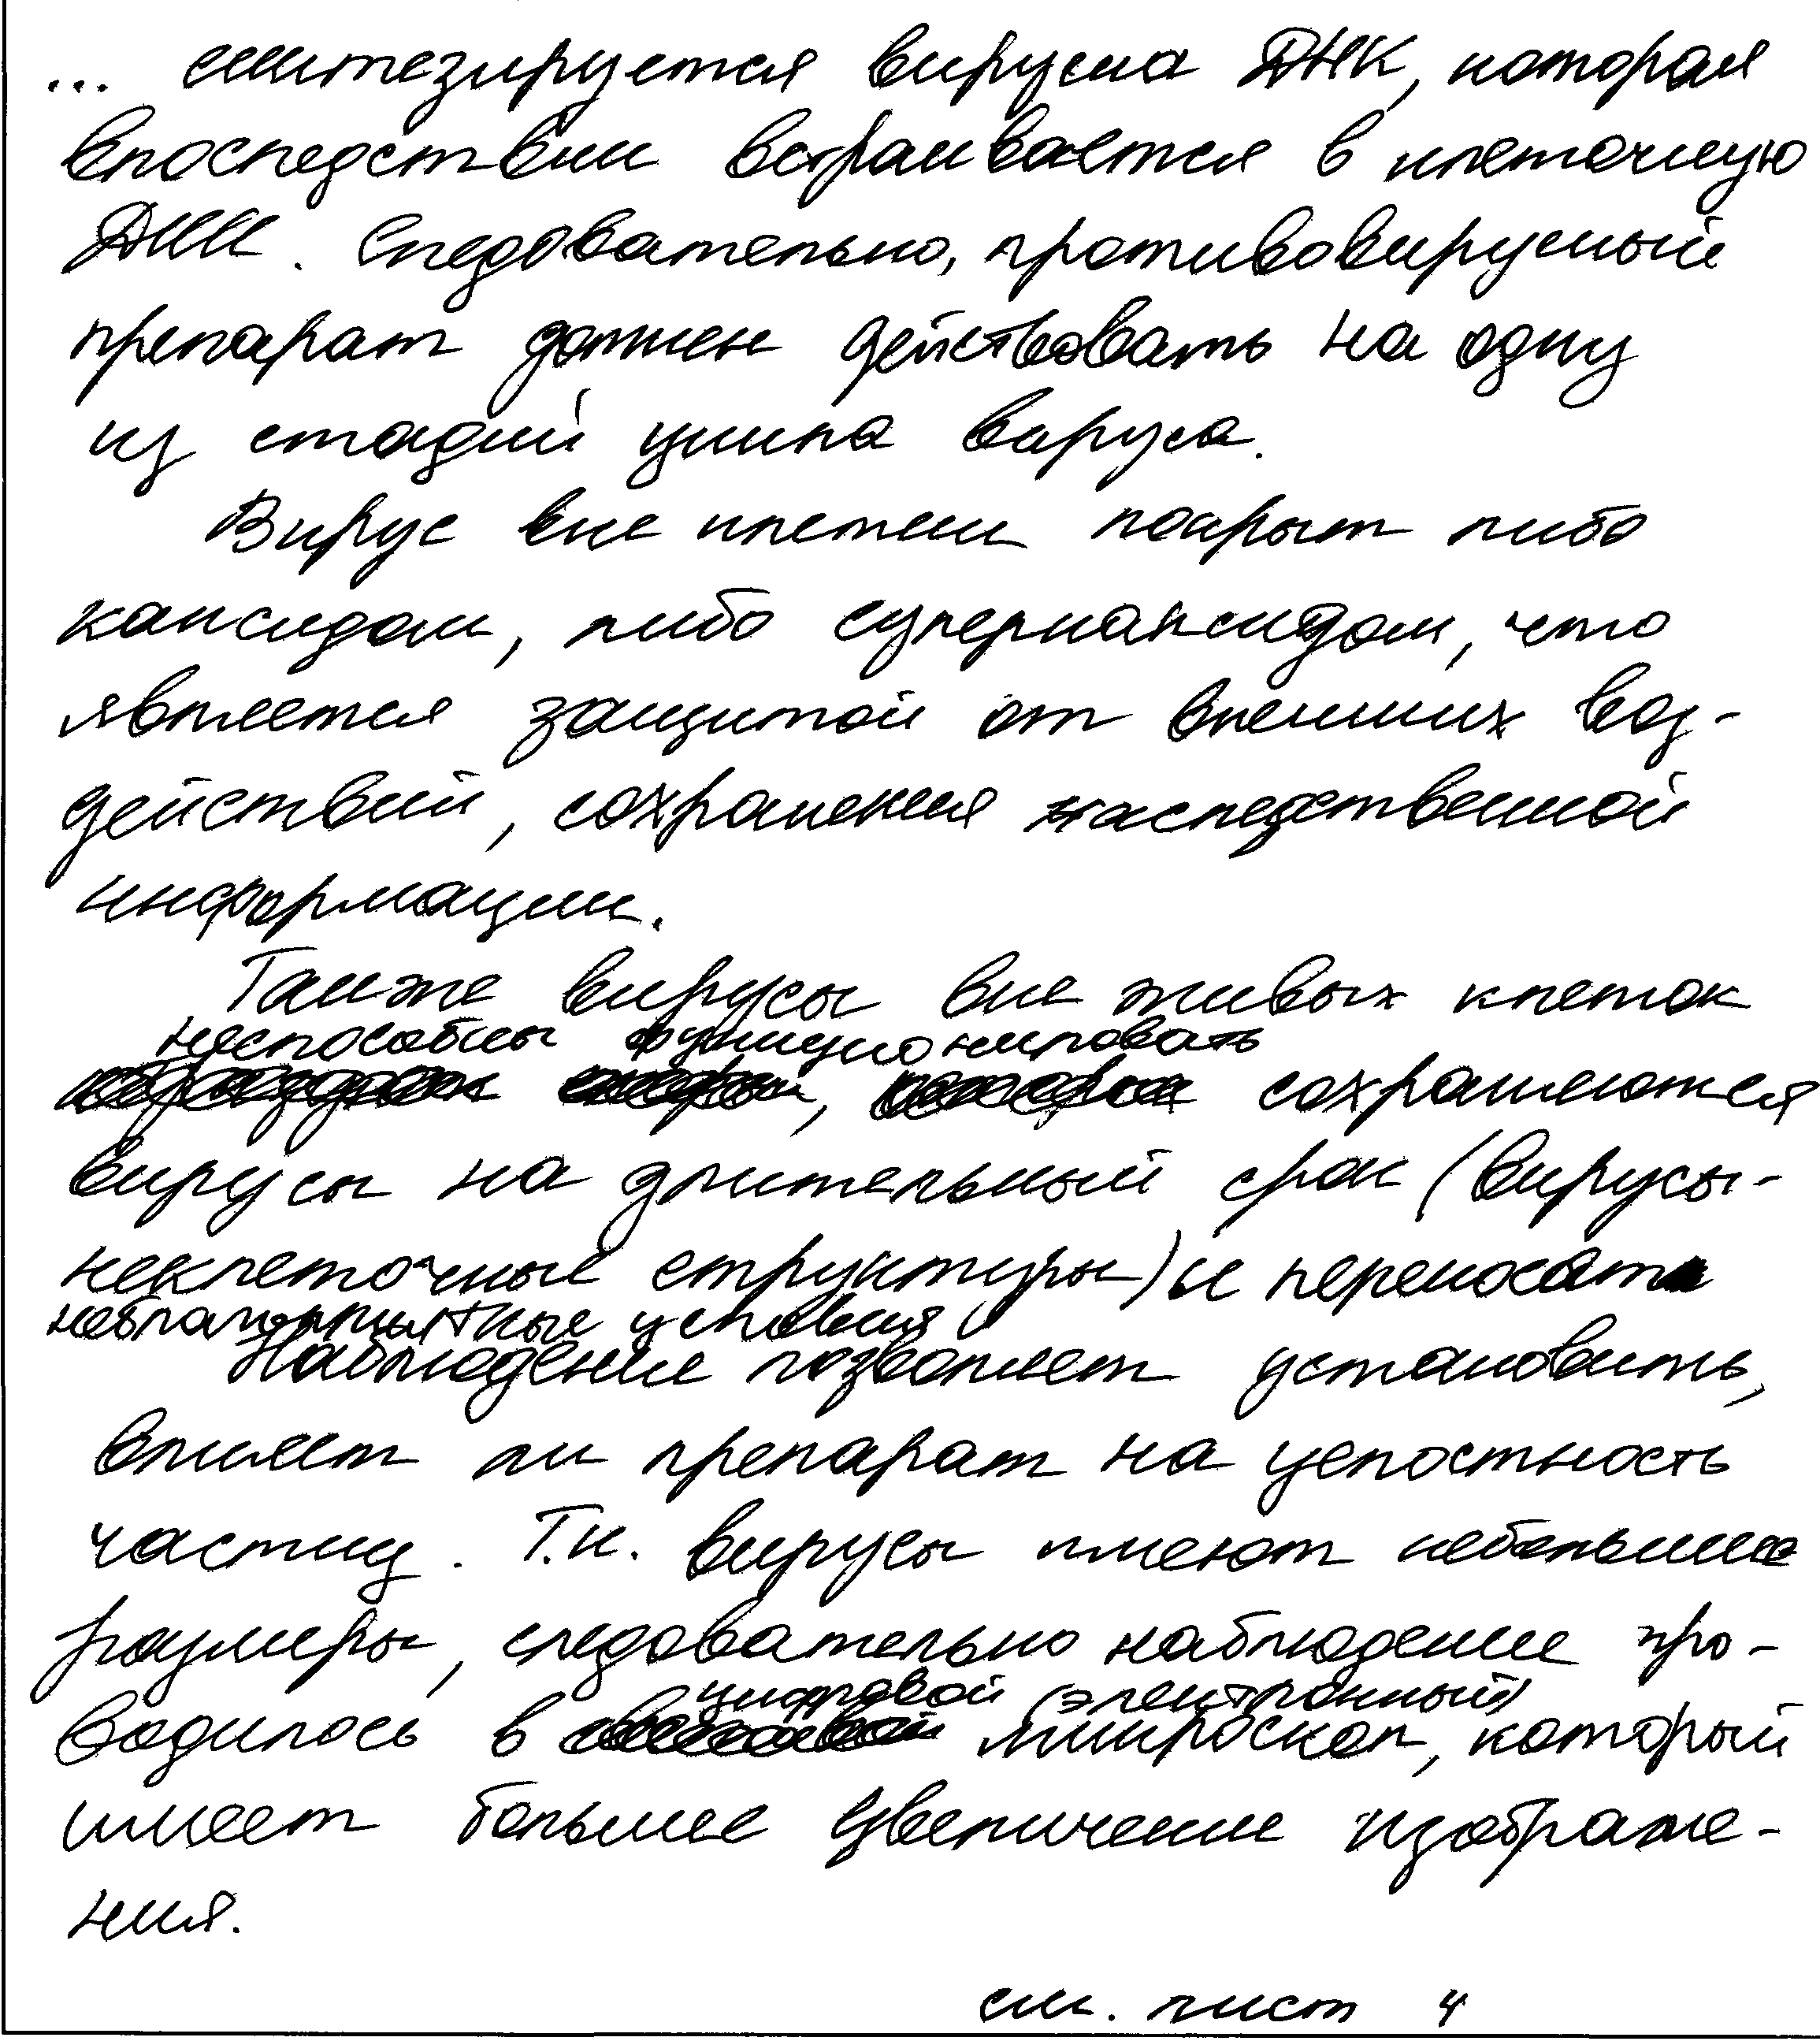 ... синтезируется вирусна ДНК, которая
впоследствии встраивается в клеточную
ДНК. Следовательно, противовирусный
препарат должен действовать на одну
из стадий цикла вируса.
Вирус вне клетки покрыт либо
капсидом, либо суперкапсидом, что
является защитой от внешних воз-
действий, сохранения наследственной
информации.
Также вирусы вне живых клеток
неспособны функционировать
, сохраняются
вирусы на длительный срок (вирусы-
неклеточные структуры) и переносат
неблагоприятные условия
Наблюдение позволяет установить,
влияет ли препарат на целостность
частиц. Т.к. вирусы имеют небольшие
размеры, следовательно наблюдение про-
цифровой (электронный)
водилось в микроскоп, который
имеет большее увеличение изображе-
ния.
см. лист 4